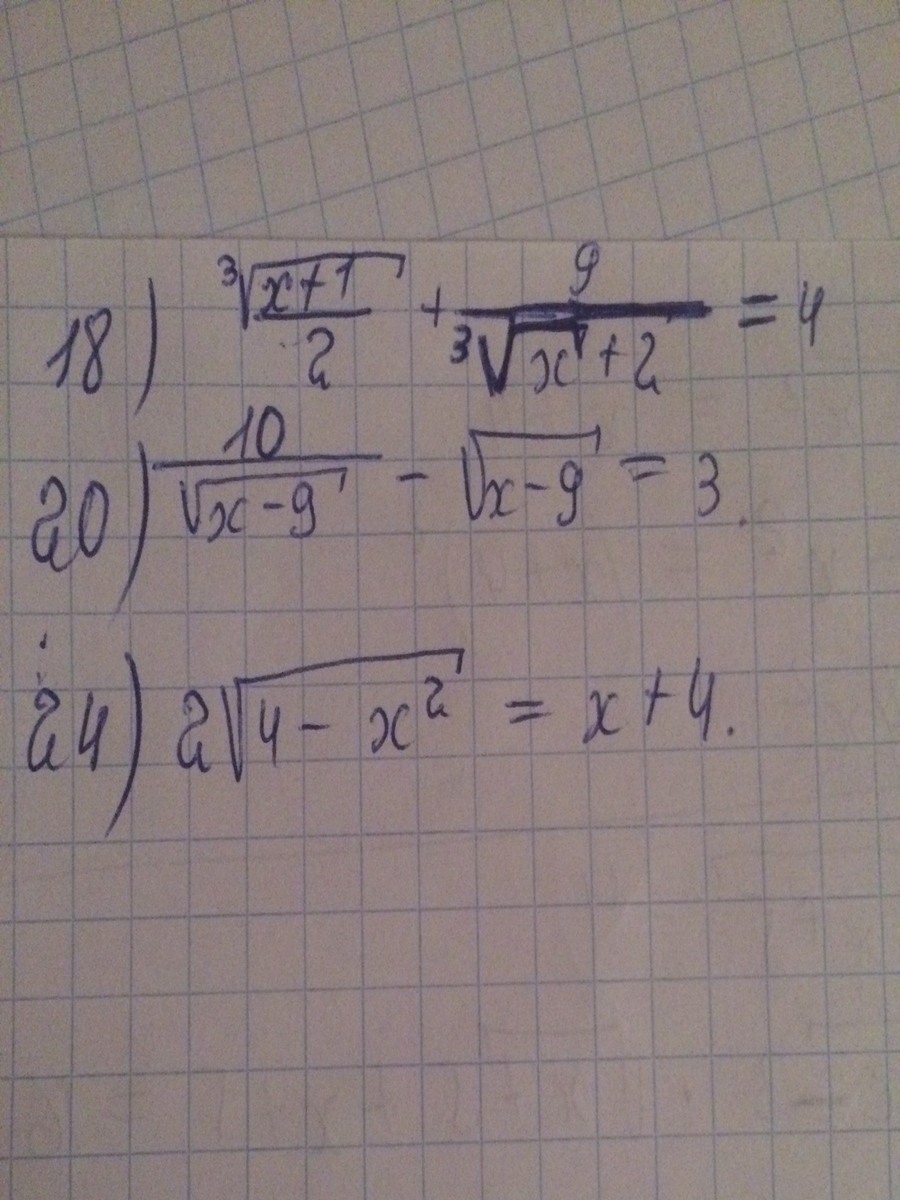 18) ∛(x+1)/2 + 9/(∛x + 2) = 4
20) 10/√(x-9) - √(x-9) = 3.
24) 2√(4 - x²) = x + 4.